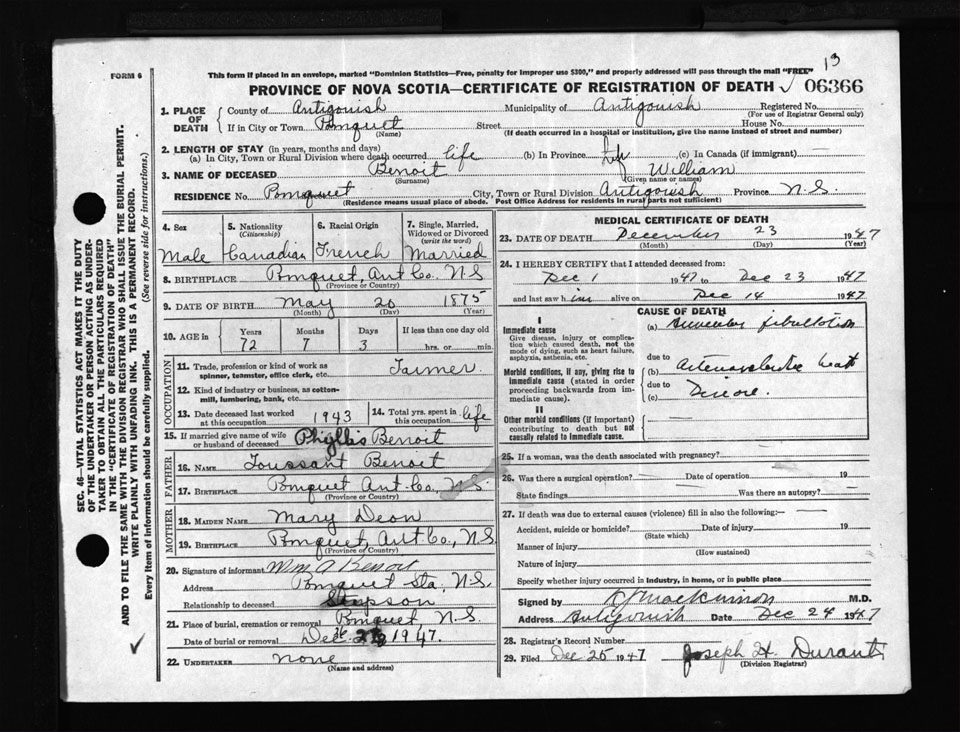 13
FORM 6
This form if placed in an envelope, marked "Dominion Statistics—Free, penalty for improper use $300," and properly addressed will pass through the mail "FREE"
PROVINCE OF NOVA SCOTIA—CERTIFICATE OF REGISTRATION OF DEATH ✓ 06366
1. PLACE OF DEATH
County of Antigonish Municipality of Antigonish Registered No.
(For use of Registrar General only)
If in City or Town Pomquet Street House No.
(Name) (If death occurred in a hospital or institution, give the name instead of street and number)
2. LENGTH OF STAY (in years, months and days)
(a) In City, Town or Rural Division where death occurred life (b) In Province life (c) In Canada (if immigrant) —
3. NAME OF DECEASED Benoit William
(Surname) (Given name or names)
RESIDENCE No. Pomquet City, Town or Rural Division Antigonish Province N.S.
(Residence means usual place of abode. Post Office Address for residents in rural parts not sufficient)
4. Sex 5. Nationality (Citizenship) 6. Racial Origin 7. Single, Married, Widowed or Divorced (write the word)
Male Canadian French Married
8. BIRTHPLACE Pomquet, Ant. Co. N.S
(Province or Country)
9. DATE OF BIRTH May 20 1875
(Month) (Day) (Year)
10. AGE in Years Months Days If less than one day old
72 7 3 hrs. or min.
OCCUPATION
11. Trade, profession or kind of work as spinner, teamster, office clerk, etc. Farmer.
12. Kind of industry or business, as cotton-mill, lumbering, bank, etc.
13. Date deceased last worked at this occupation 1943 14. Total yrs. spent in this occupation life
15. If married give name of wife or husband of deceased Phyllis Benoit
FATHER
16. NAME Toussant Benoit
17. BIRTHPLACE Pomquet Ant. Co., N.S.
(Province or Country)
MOTHER
18. MAIDEN NAME Mary Deon
19. BIRTHPLACE Pomquet, Ant. Co., N.S.
(Province or Country)
20. Signature of informant Wm A Benoit
Address Pomquet Sta, N.S.
Relationship to deceased Stepson
21. Place of burial, cremation or removal Pomquet N.S.
Date of burial or removal Dec. 1947.
22. UNDERTAKER none
(Name and address)
MEDICAL CERTIFICATE OF DEATH
23. DATE OF DEATH December 23 1947
(Month) (Day) (Year)
24. I HEREBY CERTIFY that I attended deceased from:
Dec 1 1947 to Dec 23 1947
and last saw him alive on Dec 14 1947
CAUSE OF DEATH
I
Immediate cause
Give disease, injury or complication which caused death, not the mode of dying, such as heart failure, asphyxia, asthenia, etc.
(a) fibrillation
due to
Morbid conditions, if any, giving rise to immediate cause (stated in order proceeding backwards from immediate cause).
(b) heart
due to
(c) Disease.
II
Other morbid conditions (if important) contributing to death but not causally related to immediate cause.
25. If a woman, was the death associated with pregnancy?
26. Was there a surgical operation? Date of operation 19
State findings Was there an autopsy?
27. If death was due to external causes (violence) fill in also the following:—
Accident, suicide or homicide? Date of injury 19
(State which)
Manner of injury
(How sustained)
Nature of injury
Specify whether injury occurred in industry, in home, or in public place
Signed by MacKinnon M.D.
Address Antigonish Date Dec 24 1947
28. Registrar's Record Number
29. Filed Dec 25 1947 Joseph H. Durant
(Division Registrar)
SEC. 46—VITAL STATISTICS ACT MAKES IT THE DUTY
OF THE UNDERTAKER OR PERSON ACTING AS UNDER-
TAKER TO OBTAIN ALL THE PARTICULARS REQUIRED
IN THE "CERTIFICATE OF REGISTRATION OF DEATH"
AND TO FILE THE SAME WITH THE DIVISION REGISTRAR WHO SHALL ISSUE THE BURIAL PERMIT.
WRITE PLAINLY WITH UNFADING INK. THIS IS A PERMANENT RECORD.
Every item of information should be carefully supplied. (See reverse side for instructions.)